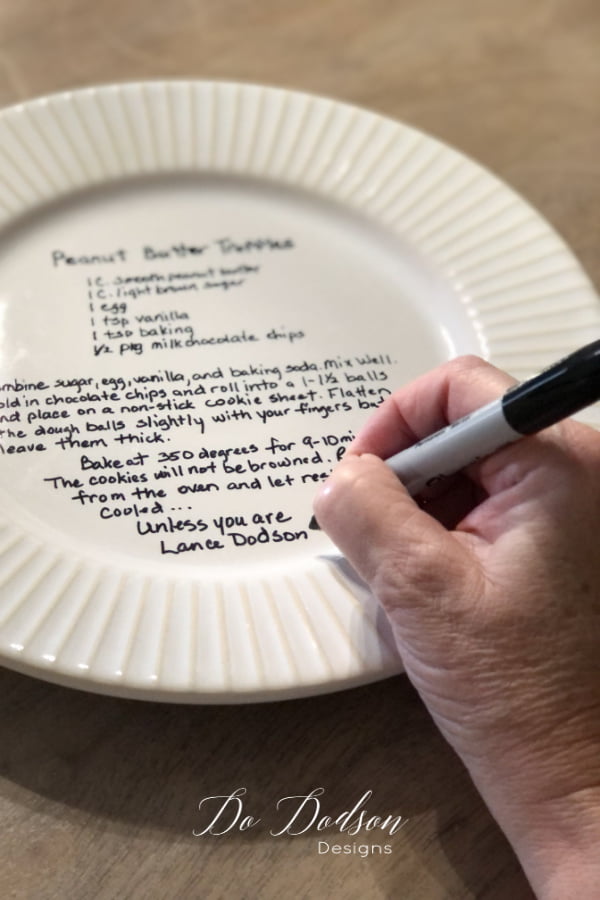 Peanut Butter Truffles
1 C. smooth peanut butter
1 C. light brown sugar
1 egg
1 tsp vanilla
1 tsp baking
1/2 pkg milk chocolate chips
mbine sugar, egg, vanilla, and baking soda. Mix well.
old in chocolate chips and roll into a 1-1½ balls
nd place on a non-stick cookie sheet. Flatten
the dough balls slightly with your fingers but
leave them thick.
Bake at 350 degrees for 9-10 mi
The cookies will not be browned.
from the oven and let res
cooled ...
Unless you are
Lance Dodson
Do Dodson
Designs